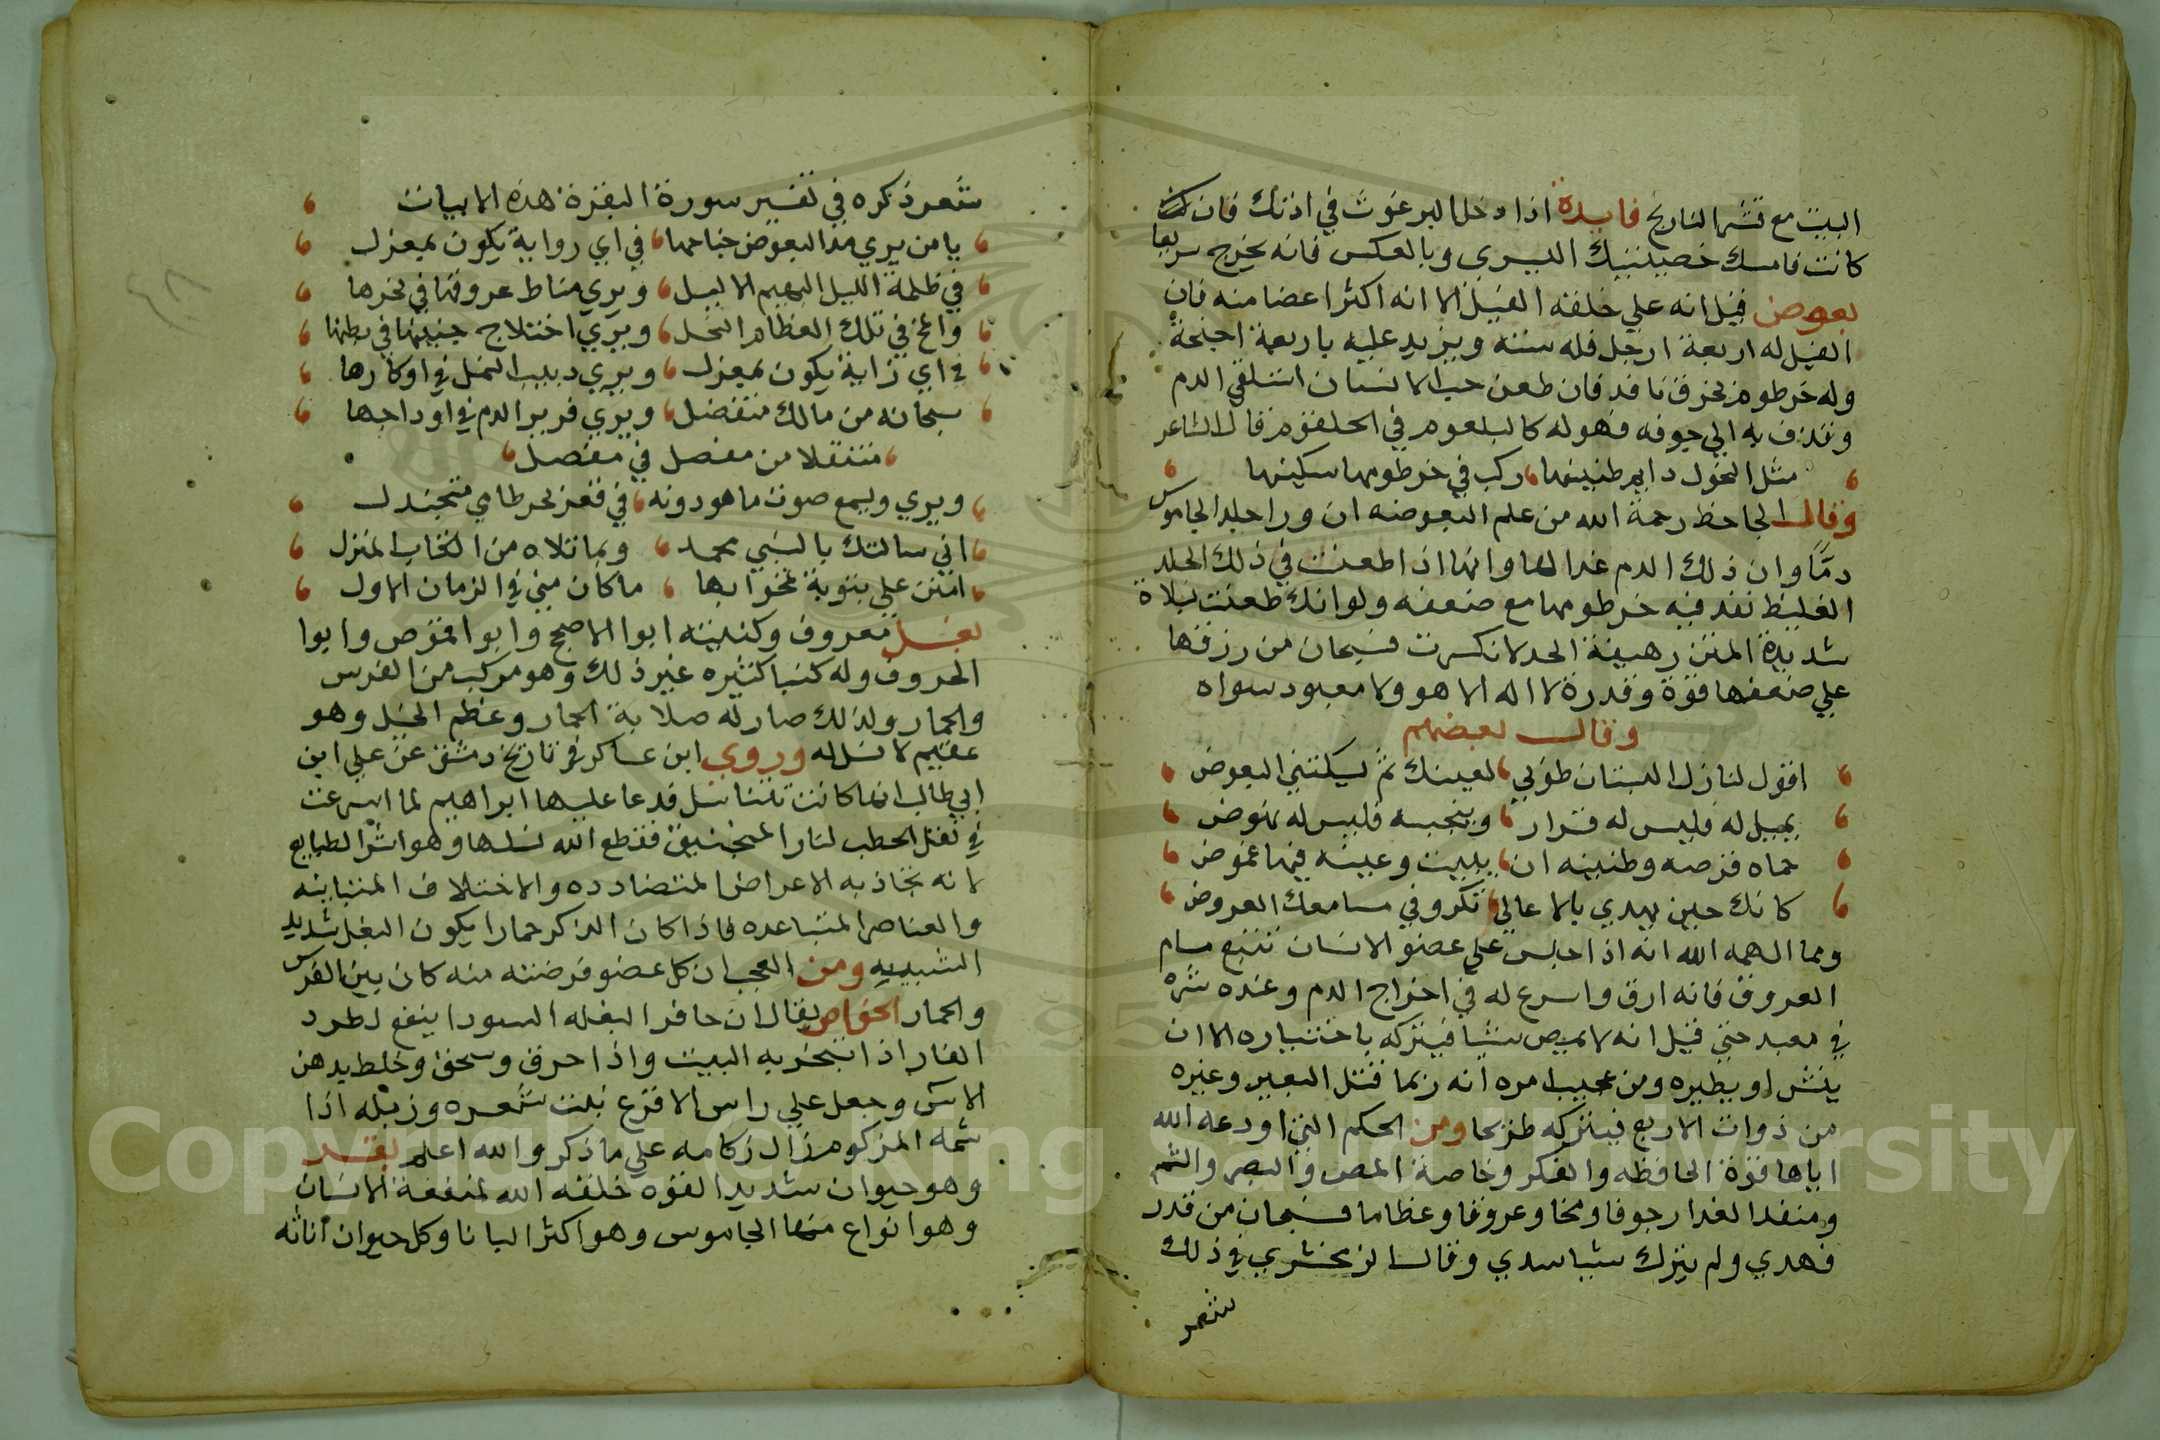 البيت مع قشر النارنج فايدة اذا دخل البرغوث في اذنك فان كنت
كانت فامسك خصيتيك اليسري وبالعكس فانه يخرج سريعا
بعوض قيل انه علي خلقة الفيل الا انه اكثر اعضا منه فان
الفيل له اربعة ارجل فله ستة ويزيد عليه باربعة اجنحة
وله خرطوم مخرق نافد فان طعن جسد الانسان استلقي الدم
وقذف به الي جوفه فهو له كالبلعوم في الحلقوم قال الشاعر
مثل النحول دايم طنينها ركب في خرطومها سكينها
وقال الجاحظ رحمة الله من علم البعوضه ان ورا جلد الجاموس
دمًا وان ذلك الدم غدا لها وانها اذا طعنت في ذلك الجلد
الغليظ نفد فيه خرطومها مع ضعفه ولو انك طعنت بمسلة
شديدة المتن رهيفة الحد لانكسرت فسبحان من رزقها
علي ضعفها قوة وقدرة لا اله الا هو ولا معبود سواه
وقال بعضهم
اقول لنازل البستان طوبي لعيشك ثم يسكتني البعوض
يميل له فليس له قرار ويحبسه فليس له نهوض
حماه قرصه وطنينه ان يبيت وعينه فيها غموض
كانك حين يهدي بالاعالي تكرر في مسامعك العروض
ومما الهمه الله انه اذا جلس علي عضو الانسان تتبع مسام
العروق فانه ارق واسرع له في اخراج الدم وعنده شره
في مصه حتي قيل انه لا يمص شيا فيتركه باختياره الا ان
ينشق او يطيره ومن عجيب امره انه ربما قتل البعير وغيره
من ذوات الاربع فيتركه طريحا ومن الحكم التي اودعه الله
اياها قوة الحافظه والفكر وخاصة المص والبصر والشم
ومنفد الغدا وجوفا ومخا وعروقا وعظاما فسبحان من قدر
فهدي ولم يترك شيا سدي وقال الزمخشري في ذلك
شعر
شعر ذكره في تفسير سورة البقرة هذه الابيات
يا من يري مد البعوض جناحها في اي رواية يكون بمعزل
في ظلمة الليل البهيم الاليل ويري مناط عروقها في نحرها
والمخ في تلك العظام النحل ويري اختلاج جنينها في بطنها
في اي زاية يكون بمعزل ويري دبيب النمل في اوكارها
سبحانه من مالك متفضل ويري قرير الدم في اوداجها
متنقلا من مفصل في مفصل
ويري ويسمع صوت ما هو دونه في قعر بحر طامي متجندل
اني سالتك بالنبي محمد وبما تلاه من الكتاب المنزل
امنن علي بتوبة تمحوا بها ما كان مني في الزمان الاول
بغل معروف وكنيته ابوا الاصبح وابوا قموص وابوا
الحروف وله كنيا كثيره غير ذلك وهو مركب من الفرس
والحمار ولذلك صار له صلابة الحمار وعظم الخيل وهو
عقيم لا نسل له وروي ابن عساكر في تاريخ دمشق عن علي ابن
ابي طالب انها كانت تتناسل فدعا عليها ابراهيم لما اسرعت
في نقل الحطب لنار المنجنيق فقطع الله نسلها وهو اشر الطبايع
لانه تجاذبه الاعراض المتضادده والاختلاف المتباينه
والعناصر المتباعده فاذا كان الذكر حمارا يكون البغل شديد
الشبه به ومن العجب ان كل عضو فرضته منه كان بين الفرس
والحمار الخواص يقال ان حافر البغله السودا ينفع لطرد
الفار اذا تبخر به البيت واذا حرق وسحق وخلط بدهن
الاس وجعل علي راس الاقرع نبت شعره وزبله اذا
شمه المزكوم زال زكامه علي ما ذكر والله اعلم بقر
وهو حيوان شديد القوه خلقه الله لمنفعة الانسان
وهو انواع منها الجاموس وهو اكثر البانا وكل حيوان اناثه
Copyright © King Saud University